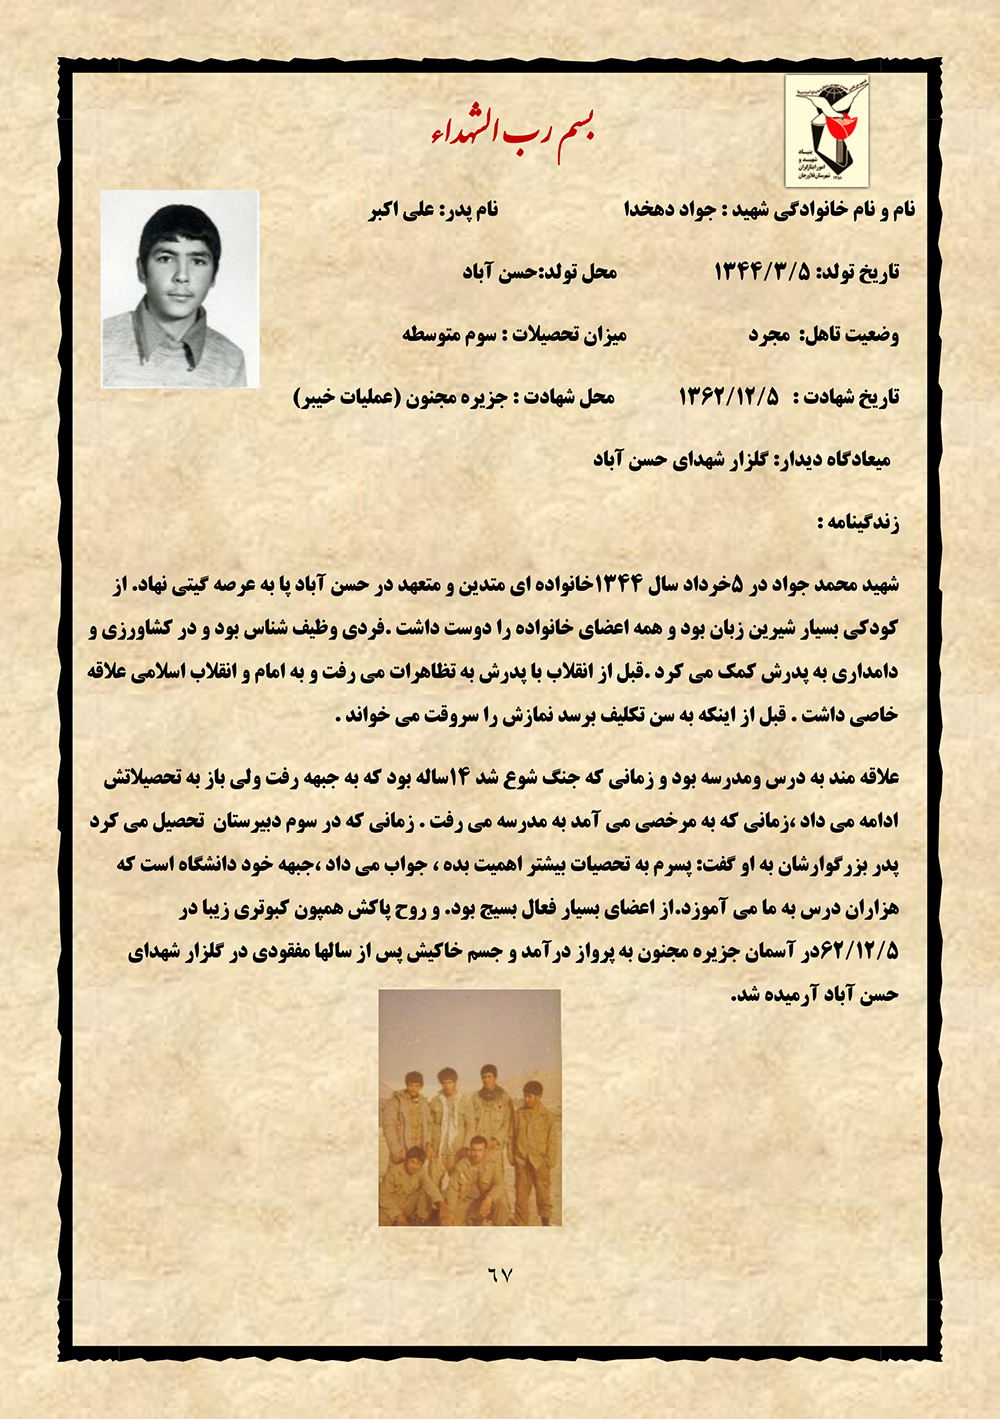 بسم رب الشهداء
بنیاد
شهید و
امور ایثارگران
شهرستان فلاورجان
نام و نام خانوادگی شهید : جواد دهخدا نام پدر: علی اکبر
تاریخ تولد: ۱۳۴۴/۳/۵ محل تولد:حسن آباد
وضعیت تاهل: مجرد میزان تحصیلات : سوم متوسطه
تاریخ شهادت : ۱۳۶۲/۱۲/۵ محل شهادت : جزیره مجنون (عملیات خیبر)
میعادگاه دیدار: گلزار شهدای حسن آباد
زندگینامه :
شهید محمد جواد در ۵خرداد سال ۱۳۴۴خانواده ای متدین و متعهد در حسن آباد پا به عرصه گیتی نهاد. از
کودکی بسیار شیرین زبان بود و همه اعضای خانواده را دوست داشت .فردی وظیف شناس بود و در کشاورزی و
دامداری به پدرش کمک می کرد .قبل از انقلاب با پدرش به تظاهرات می رفت و به امام و انقلاب اسلامی علاقه
خاصی داشت . قبل از اینکه به سن تکلیف برسد نمازش را سروقت می خواند .
علاقه مند به درس ومدرسه بود و زمانی که جنگ شوع شد ۱۴ساله بود که به جبهه رفت ولی باز به تحصیلاتش
ادامه می داد ،زمانی که به مرخصی می آمد به مدرسه می رفت . زمانی که در سوم دبیرستان تحصیل می کرد
پدر بزرگوارشان به او گفت: پسرم به تحصیات بیشتر اهمیت بده ، جواب می داد ،جبهه خود دانشگاه است که
هزاران درس به ما می آموزد.از اعضای بسیار فعال بسیج بود. و روح پاکش همپون کبوتری زیبا در
۶۲/۱۲/۵در آسمان جزیره مجنون به پرواز درآمد و جسم خاکیش پس از سالها مفقودی در گلزار شهدای
حسن آباد آرمیده شد.
٦٧